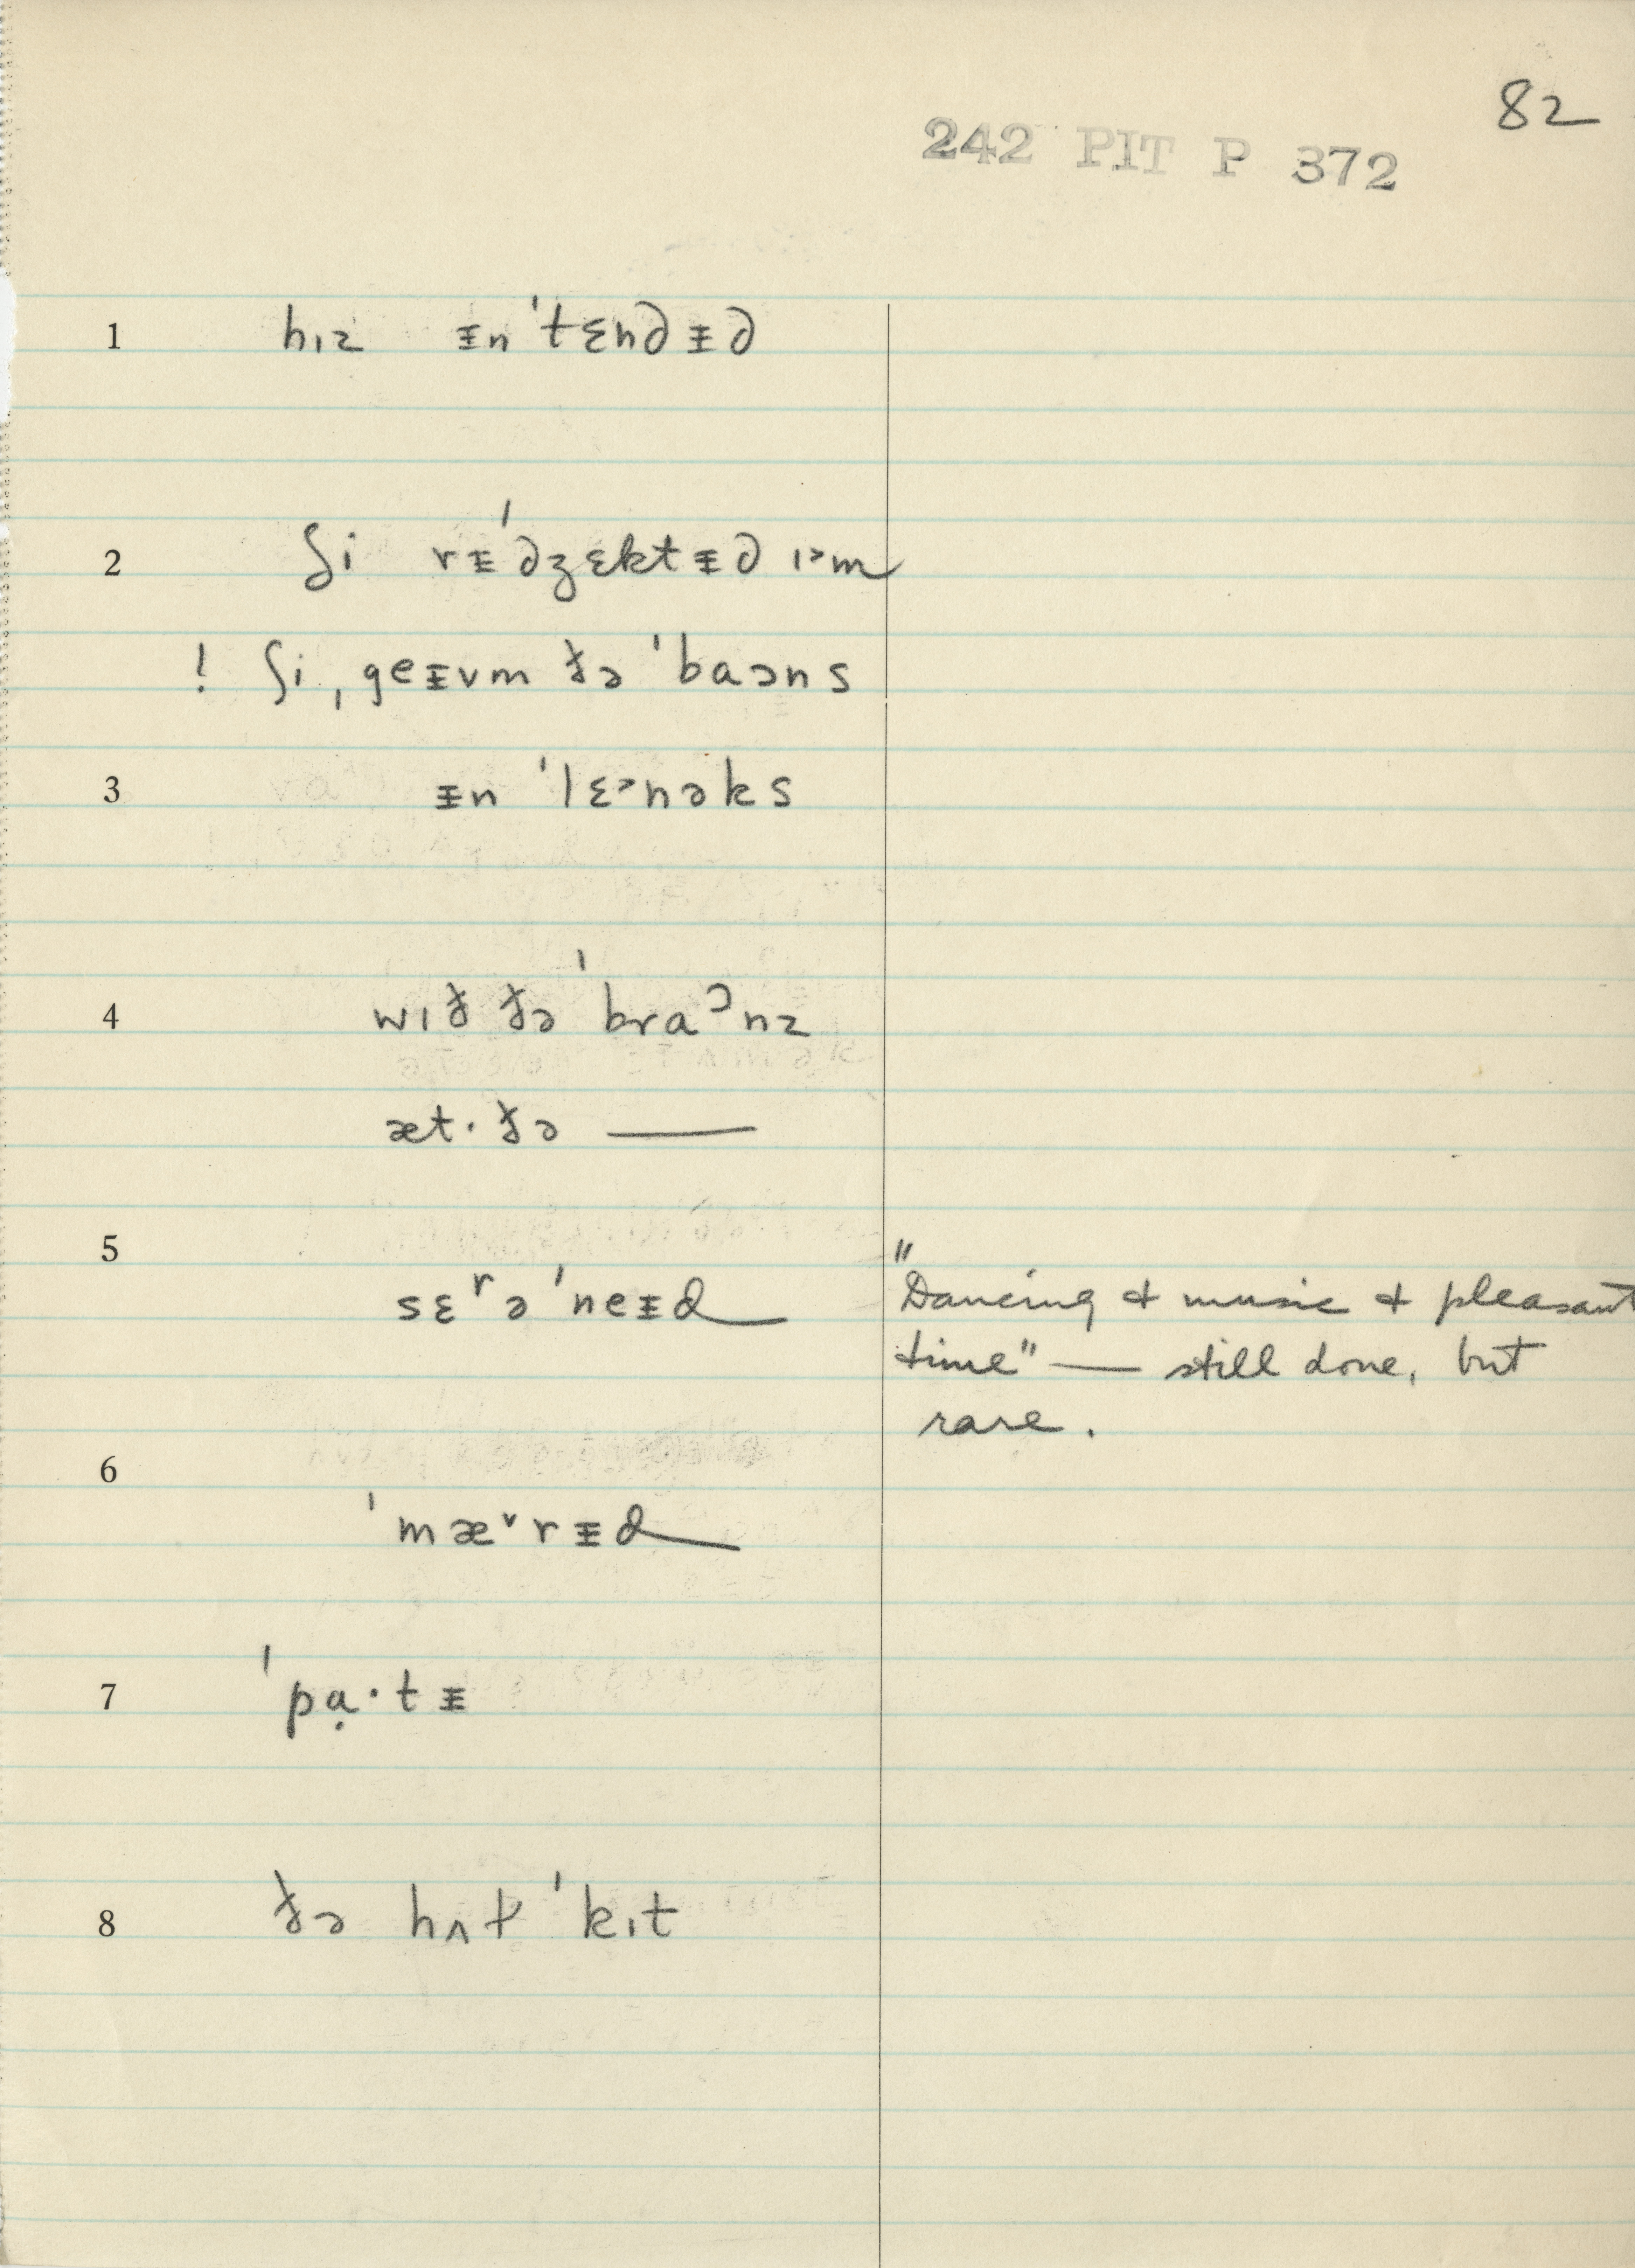 82
242 PIT P 372
1 hɪz ᵻn ˈtɛndᵻd
2 ʃi rᵻˈdʒɛktᵻd ɪ˃m
! ʃi ˌgeᵻvm ðə ˈbaɔns
3 ᵻn ˈlɛ˃nəks
4 wɪð ðə ˈbraᵓnz
æt· ðə —
5
sɛʳəˈneᵻd "Dancing & music & pleasant
time" — still done, but
rare.
6
ˈmæ˅rᵻd
7 ˈpạ·tᵻ
8 ðə hʌɫ ˈkɪt